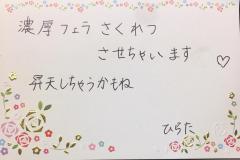 濃厚フェラ さくれつ
させちゃいます♡
昇天しちゃうかもね
ひらた